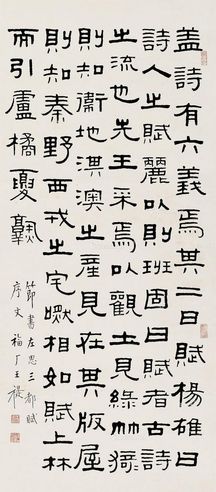 蓋詩有六義焉其二曰賦楊雄曰
詩人之賦麗以則班固曰賦者古詩
之流也先王采焉以觀土見綠竹猗
則知衛地淇澳之產見在其版屋
則知秦野西戎之宅嘫相如賦上林
而引盧橘夏孰
節書左思三都賦
序文 福厂王禔